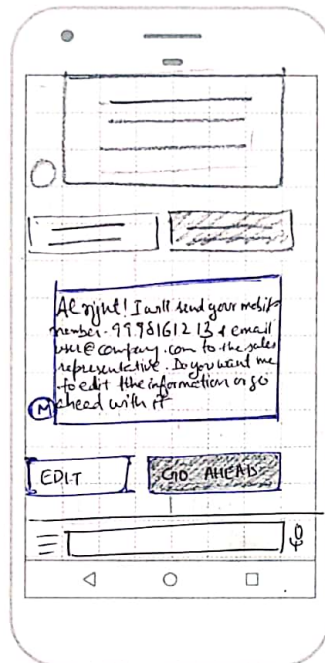 Al right! I will send your mobile
number - 9998161213 & email
user@company.com to the sales
representative. Do you want me
to edit the information or go
ahead with it
M
EDIT
GO AHEAD